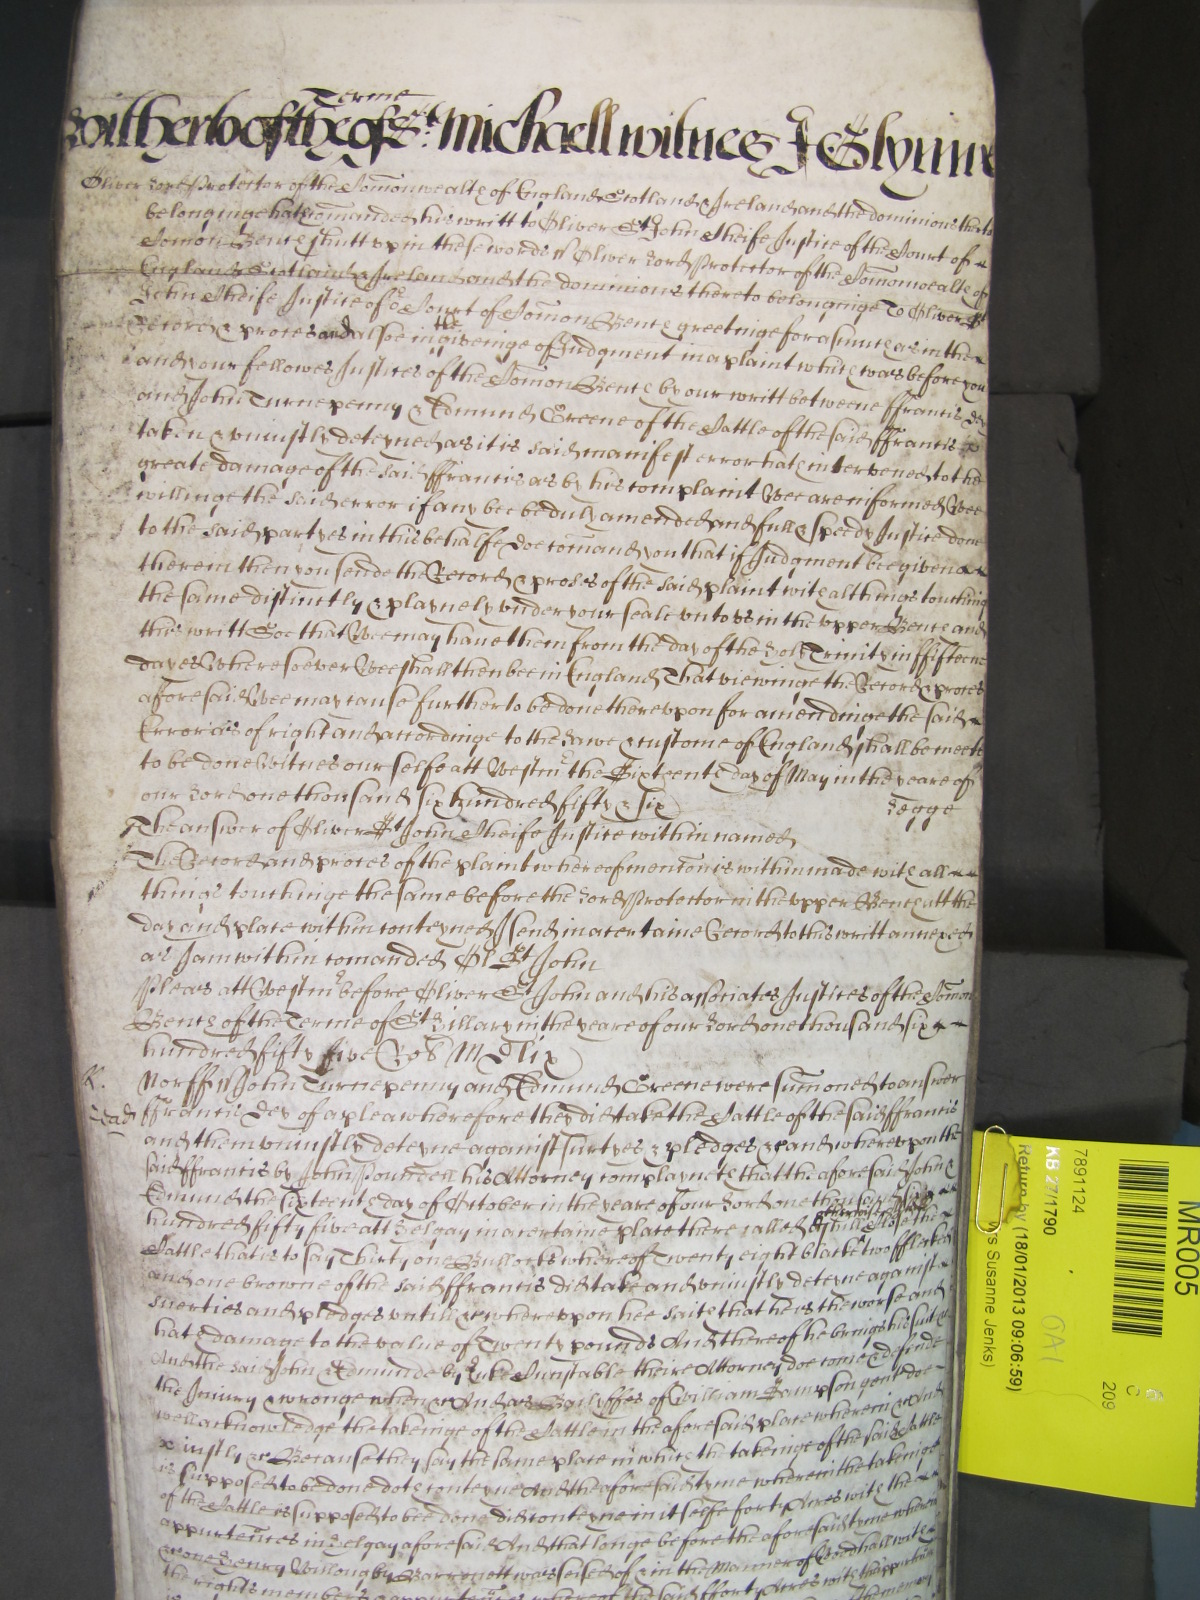 Terme
Witherbo of the of St. Michaell witnes J Glynne
Oliver Lord Protector of the Comonwealth of England Scotland & Ireland and the dominions thereto
belonginge hath comanded his writt to Oliver St John Cheife Justice of the Court of
Comon Bench shutt upp in these words ss Oliver Lord Protector of the Comonwealth of
England Scotland & Ireland and the dominions thereto belonginge To Oliver St
John Cheife Justice of or Court of Comon Bench greetinge forasmuch as in the
Record & proces and alsoe in the giveinge of Judgment in a plaint which was before you
and your fellowes Justices of the Comon Bench by our writt betweene ffrancis Dey
and John Turnepenny & Edmund Greene of the Cattle of the said ffrancis
taken & uniustly deteyned as it is said manifest error hath intervened to the
greate damage of the said ffrancis as by his complaint Wee are informed Wee
willinge the said error if any bee be duly amended and full & speedy Justice done
to the said partyes in this behalfe doe comand you that if Judgment bee given
therein then you sende the Record & proces of the said plaint with all things touching
the same distinctly & playnely under your seale unto us in the upper Bench and
this writt Soe that Wee may have them from the day of the holy Trinity in fifteene
dayes Wheresoever Wee shall then bee in England That viewinge the Record & proces
aforesaid Wee may cause further to be done thereupon for amendinge the said
Error as of right and accordinge to the Lawe & custome of England shall be meete
to be done Witnes our selfe att Westmr the Sixteenth day of May in the yeare of
our Lord one thousand six hundred fifty & six
Legge
The answer of Oliver St John Cheife Justice within named
The Record and proces of the plaint whereof mencon is within made with all
things touchinge the same before the Lord Protector in the upper Bench att the
day and place within conteyned I send in a certaine Record to this writt annexed
as I am within comanded Ol St John
Pleas att Westmr before Oliver St John and his associates Justices of the Comon
Bench of the Terme of St Hillary in the yeare of our Lord one thousand six
hundred fifty five Ro
Norff ss John Turnepenny and Edmund Greene were sumoned to answer
ffrancis Dey of a plea wherefore they did take the Cattle of the said ffrancis
and them uniustly deteyne against suertyes & pledges &c and whereupon the
said ffrancis by John Poundell his Attorney complayneth that the aforesaid John &
Edmund the sixteenth day of October in the yeare of our Lord one thousand six
hundred fifty five att Helgay in a certaine place there called hill Close the
Cattle that is to say Thirty one Bullocks whereof Twenty eight blacke two
and one browne of the said ffrancis did take and uniustly deteyne against
suerties and pledges untill &c whereupon hee saith that he is the worse and
hath damage to the value of Twenty pounds And thereof he brings his suit &c
And the said John & Edmunde by Luke Cunstable theire Attorney doe come & defende
the Iniury & wronge when &c And as Baylyffes of William Sampson gent doe
well acknowledge the takeinge of the Cattle in the aforesaid place wherein &c And
iustly &c Because they say the same place in which the takeinge of the said Cattle
is supposed to be done doth conteyne And the aforesaid tyme wherein the takeinge
of the Cattle is supposed to bee done did conteyne in it selfe forty Acres with the
appurtences in Helgay aforesaid And that longe before the aforesaid tyme wherein
&c one Henry Willoughby Barronett was seised of & in the Mannor of Woodhall with
the rights members & appurtences whereof the said fforty Acres with thappurtences
MR005
7891124
KB 27/1790
Return by (18/01/2013 09:06:59)
Ms Susanne Jenks)
OA1
C
209